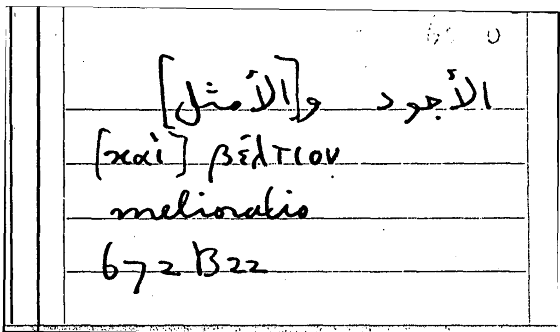 الأجود و[الأمثل]
[καὶ] βέλτιον
melioratio
672 B22